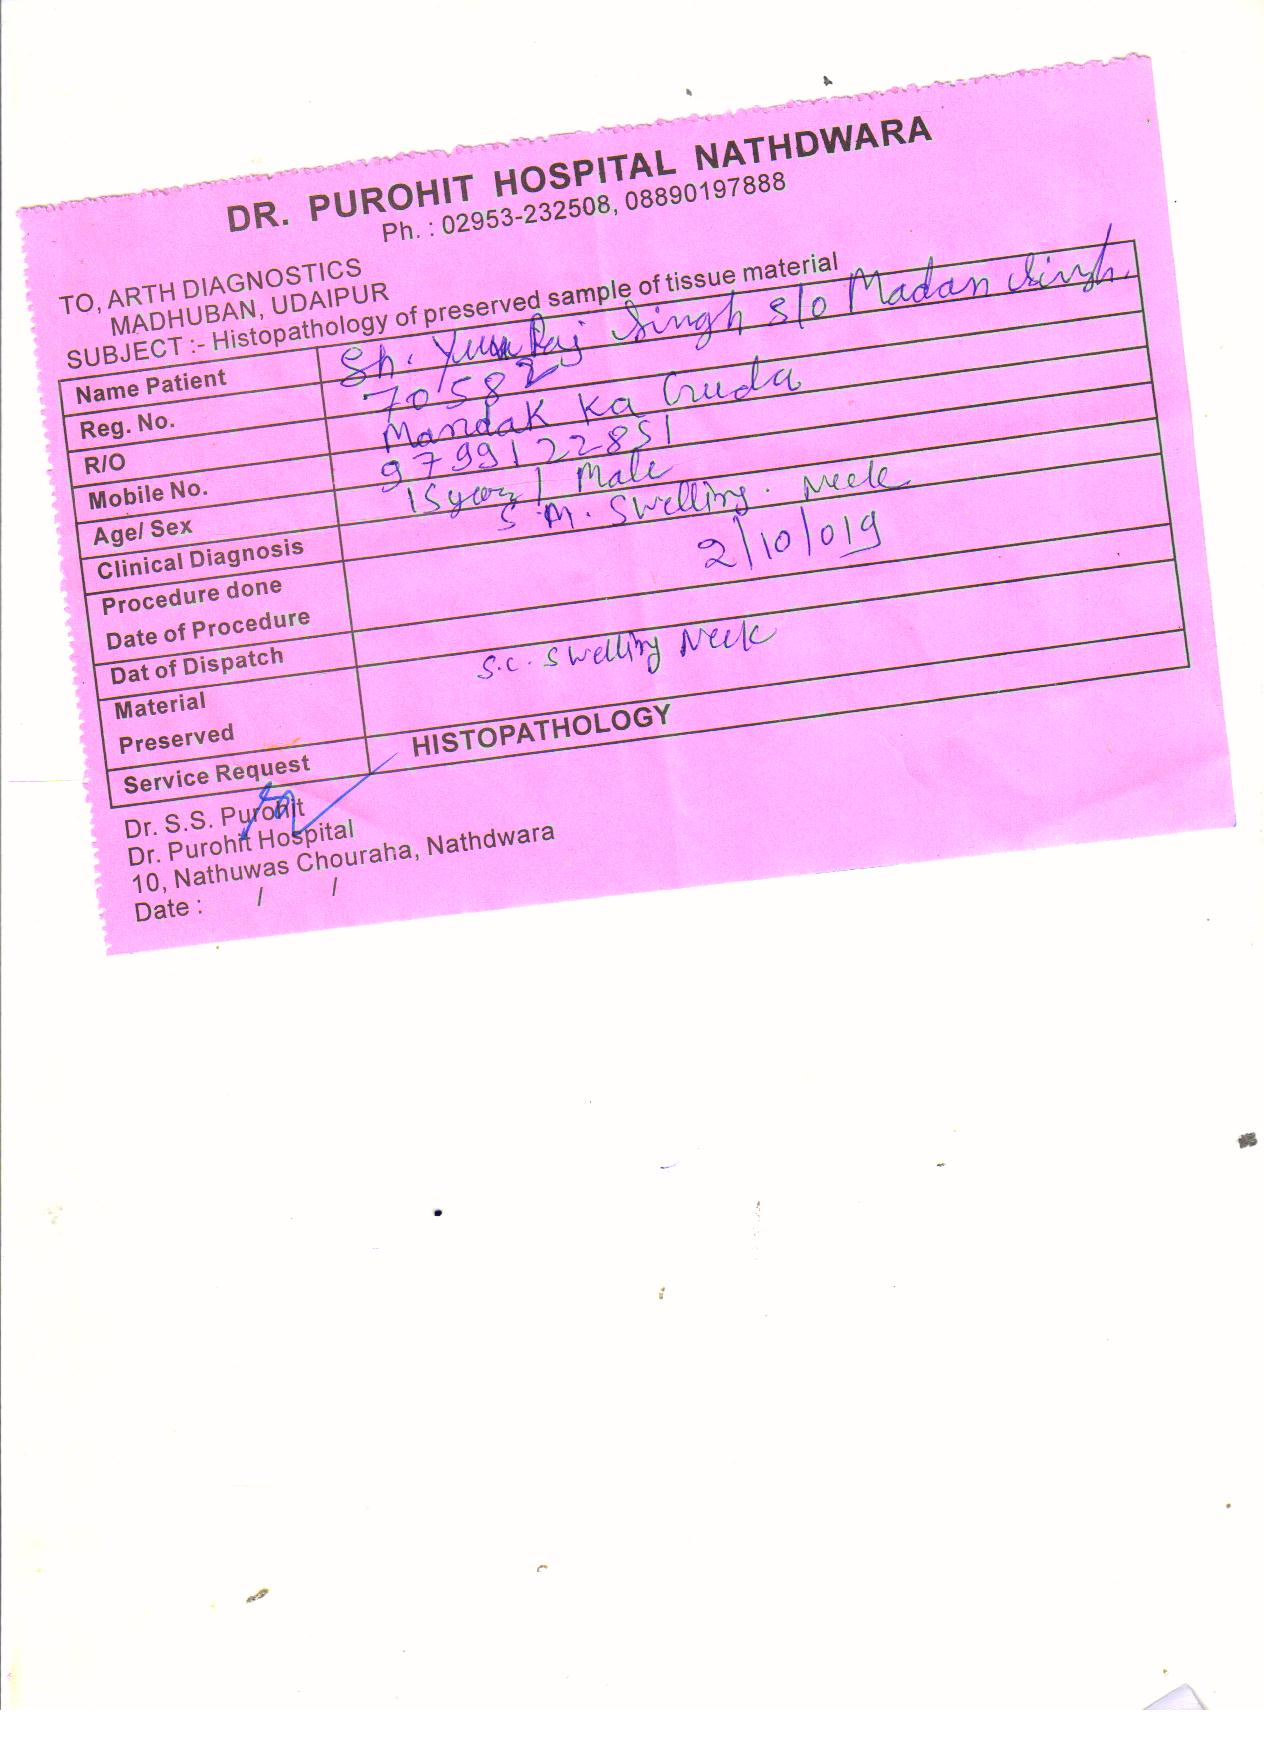 DR. PUROHIT HOSPITAL NATHDWARA
Ph. : 02953-232508, 08890197888
TO, ARTH DIAGNOSTICS
MADHUBAN, UDAIPUR
SUBJECT :- Histopathology of preserved sample of tissue material
Name Patient Sh. Singh s/o Madan Singh.
Reg. No. 70582
R/O Mandak Ka Guda
Mobile No. 9799122851
Age/ Sex 15 year / Male
Clinical Diagnosis Swelling. Neck
Procedure done
Date of Procedure 2/10/019
Dat of Dispatch
Material
Preserved S.C. Swelling Neck
Service Request HISTOPATHOLOGY
Dr. S.S. Purohit
Dr. Purohit Hospital
10, Nathuwas Chouraha, Nathdwara
Date : / /